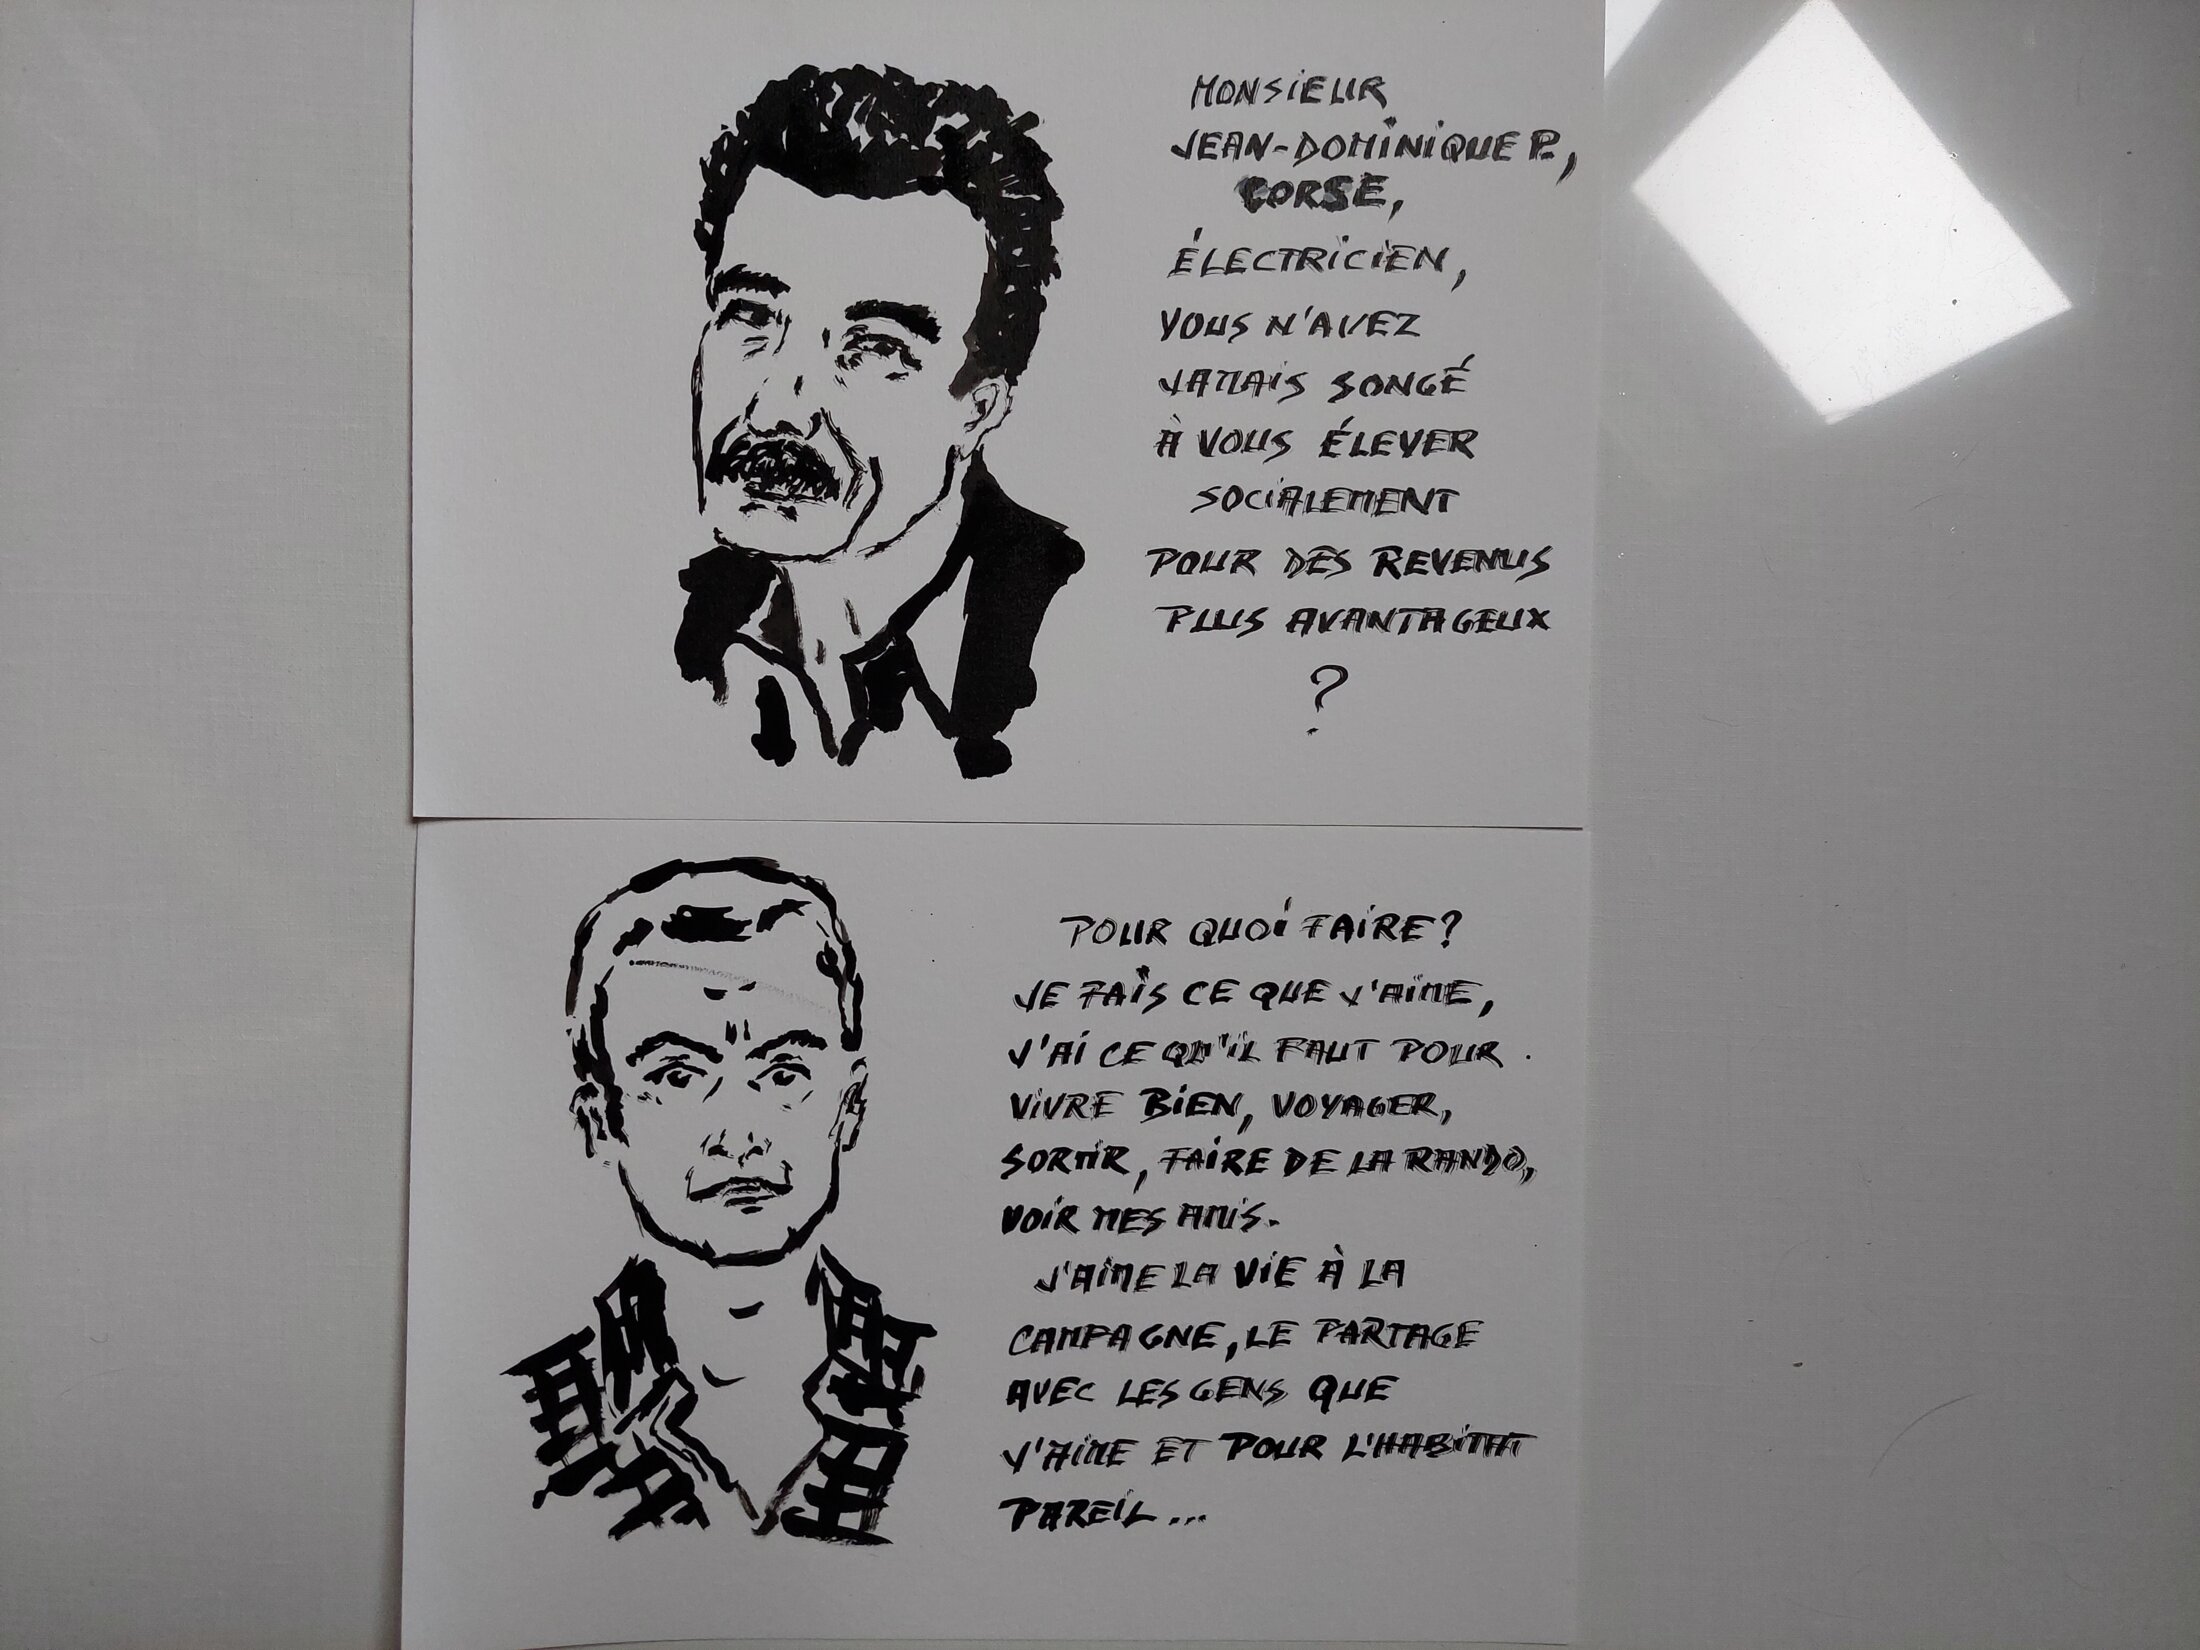 MONSIEUR
JEAN-DOMINIQUE P.,
CORSE,
ÉLECTRICIEN,
VOUS N'AVEZ
JAMAIS SONGÉ
À VOUS ÉLEVER
SOCIALEMENT
POUR DES REVENUS
PLUS AVANTAGEUX
?
POUR QUOI FAIRE?
JE FAIS CE QUE J'AIME,
J'AI CE QU'IL FAUT POUR
VIVRE BIEN, VOYAGER,
SORTIR, FAIRE DE LA RANDO,
VOIR MES AMIS.
J'AIME LA VIE À LA
CAMPAGNE, LE PARTAGE
AVEC LES GENS QUE
J'AIME ET POUR L'HABITAT
PAREIL...